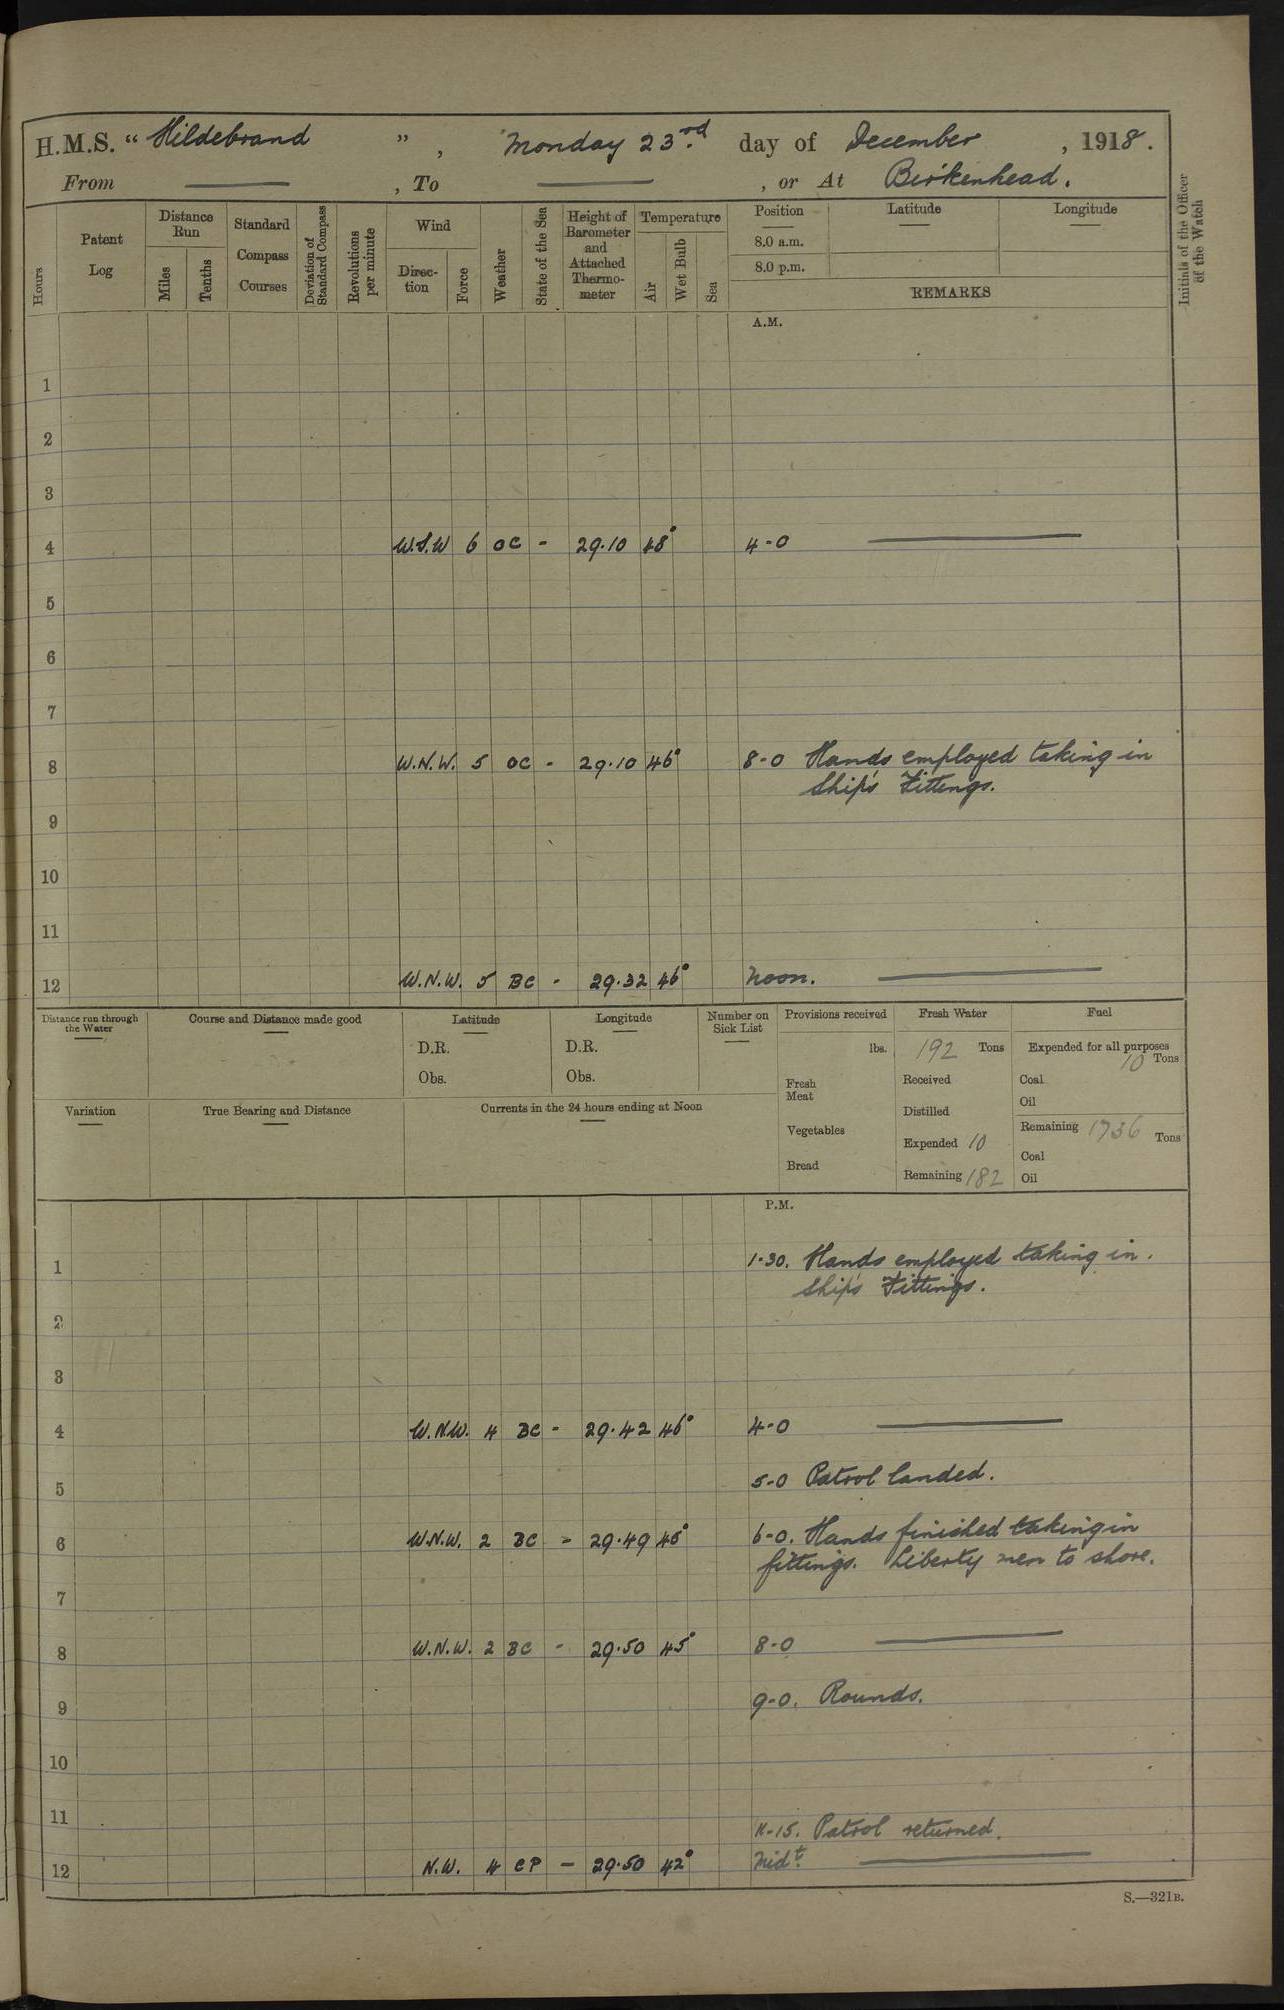 H.M.S. “ Hildebrand ” , Monday 23rd. day of December , 1918.
From — , To — , or At Birkenhead.
Hours
Patent Log
Distance Run
Miles
Tenths
Standard Compass Courses
Deviation of Standard Compass
Revolutions per minute
Wind
Direction
Force
Weather
State of the Sea
Height of Barometer and Attached Thermometer
Temperature
Air
Wet Bulb
Sea
Position
8.0 a.m.
8.0 p.m.
Latitude
Longitude
REMARKS
Initials of the Officer of the Watch
A.M.
1
2
3
4 W.S.W 6 OC - 29.10 48° 4-0 —
5
6
7
8 W.N.W. 5 OC - 29.10 46° 8-0 Hands employed taking in
Ship's Fittings.
9
10
11
12 W.N.W. 5 BC - 29.32 46° Noon. —
Distance run through the Water
Course and Distance made good
Latitude
D.R.
Obs.
Longitude
D.R.
Obs.
Number on Sick List
Provisions received
lbs.
Fresh Meat
Vegetables
Bread
Fresh Water
192 Tons
Received
Distilled
Expended 10
Remaining 182
Fuel
Expended for all purposes
10 Tons
Coal
Oil
Remaining 1736 Tons
Coal
Oil
Variation
True Bearing and Distance
Currents in the 24 hours ending at Noon
P.M.
1 1-30. Hands employed taking in.
Ship's Fittings.
2
3
4 W.N.W. 4 BC - 29.42 46° 4-0 —
5 5-0 Patrol landed.
6 W.N.W. 2 BC - 29.49 45° 6-0. Hands finished taking in
fittings. Liberty men to shore.
7
8 W.N.W. 2 BC - 29.50 45° 8-0 —
9 9-0. Rounds.
10
11 11-15. Patrol returned.
12 N.W. 4 CP - 29.50 42° Midt. —
S.—321B.